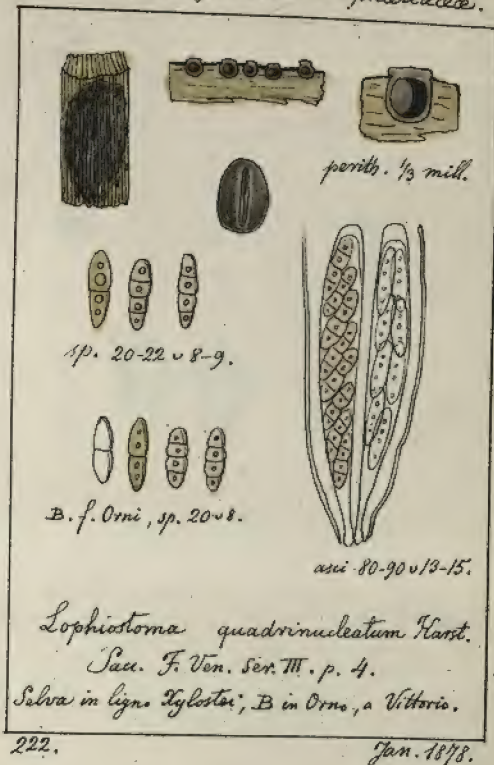 perith. 1/3 mill.
sp. 20-22 v 8-9.
B. f. Orni, sp. 20 v 8.
asci 80-90 v 13-15.
Lophiostoma quadrinucleatum Karst.
Sacc. F. Ven. Ser. III. p. 4.
Selva in ligno Xylostei; B in Orno, a Vittorio.
222.
Jan. 1878.